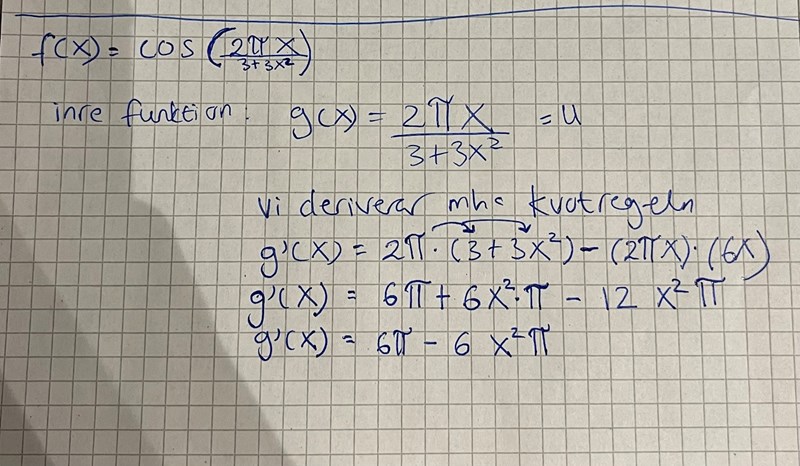 f(x) = cos (2πx / 3+3x²)
inre funktion: g(x) = 2πx / 3+3x² = u
vi deriverar mha kvotregeln
g'(x) = 2π · (3+3x²) − (2πx) · (6x)
g'(x) = 6π + 6x²·π − 12 x²π
g'(x) = 6π − 6 x²π